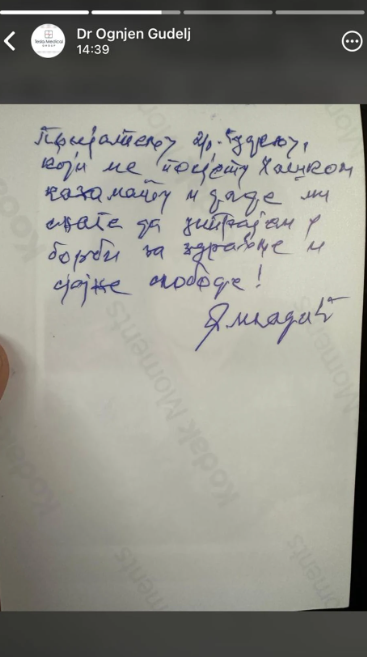 Dr Ognjen Gudelj
14:39
Пријатељу др. Гудељу,
који ме посјети у Хашком
казамату и даде ми
снаге да истрајем у
борби за здравље и
слободе!
Р Младић
Kodak Moments
Kodak Moments
Kodak Moments